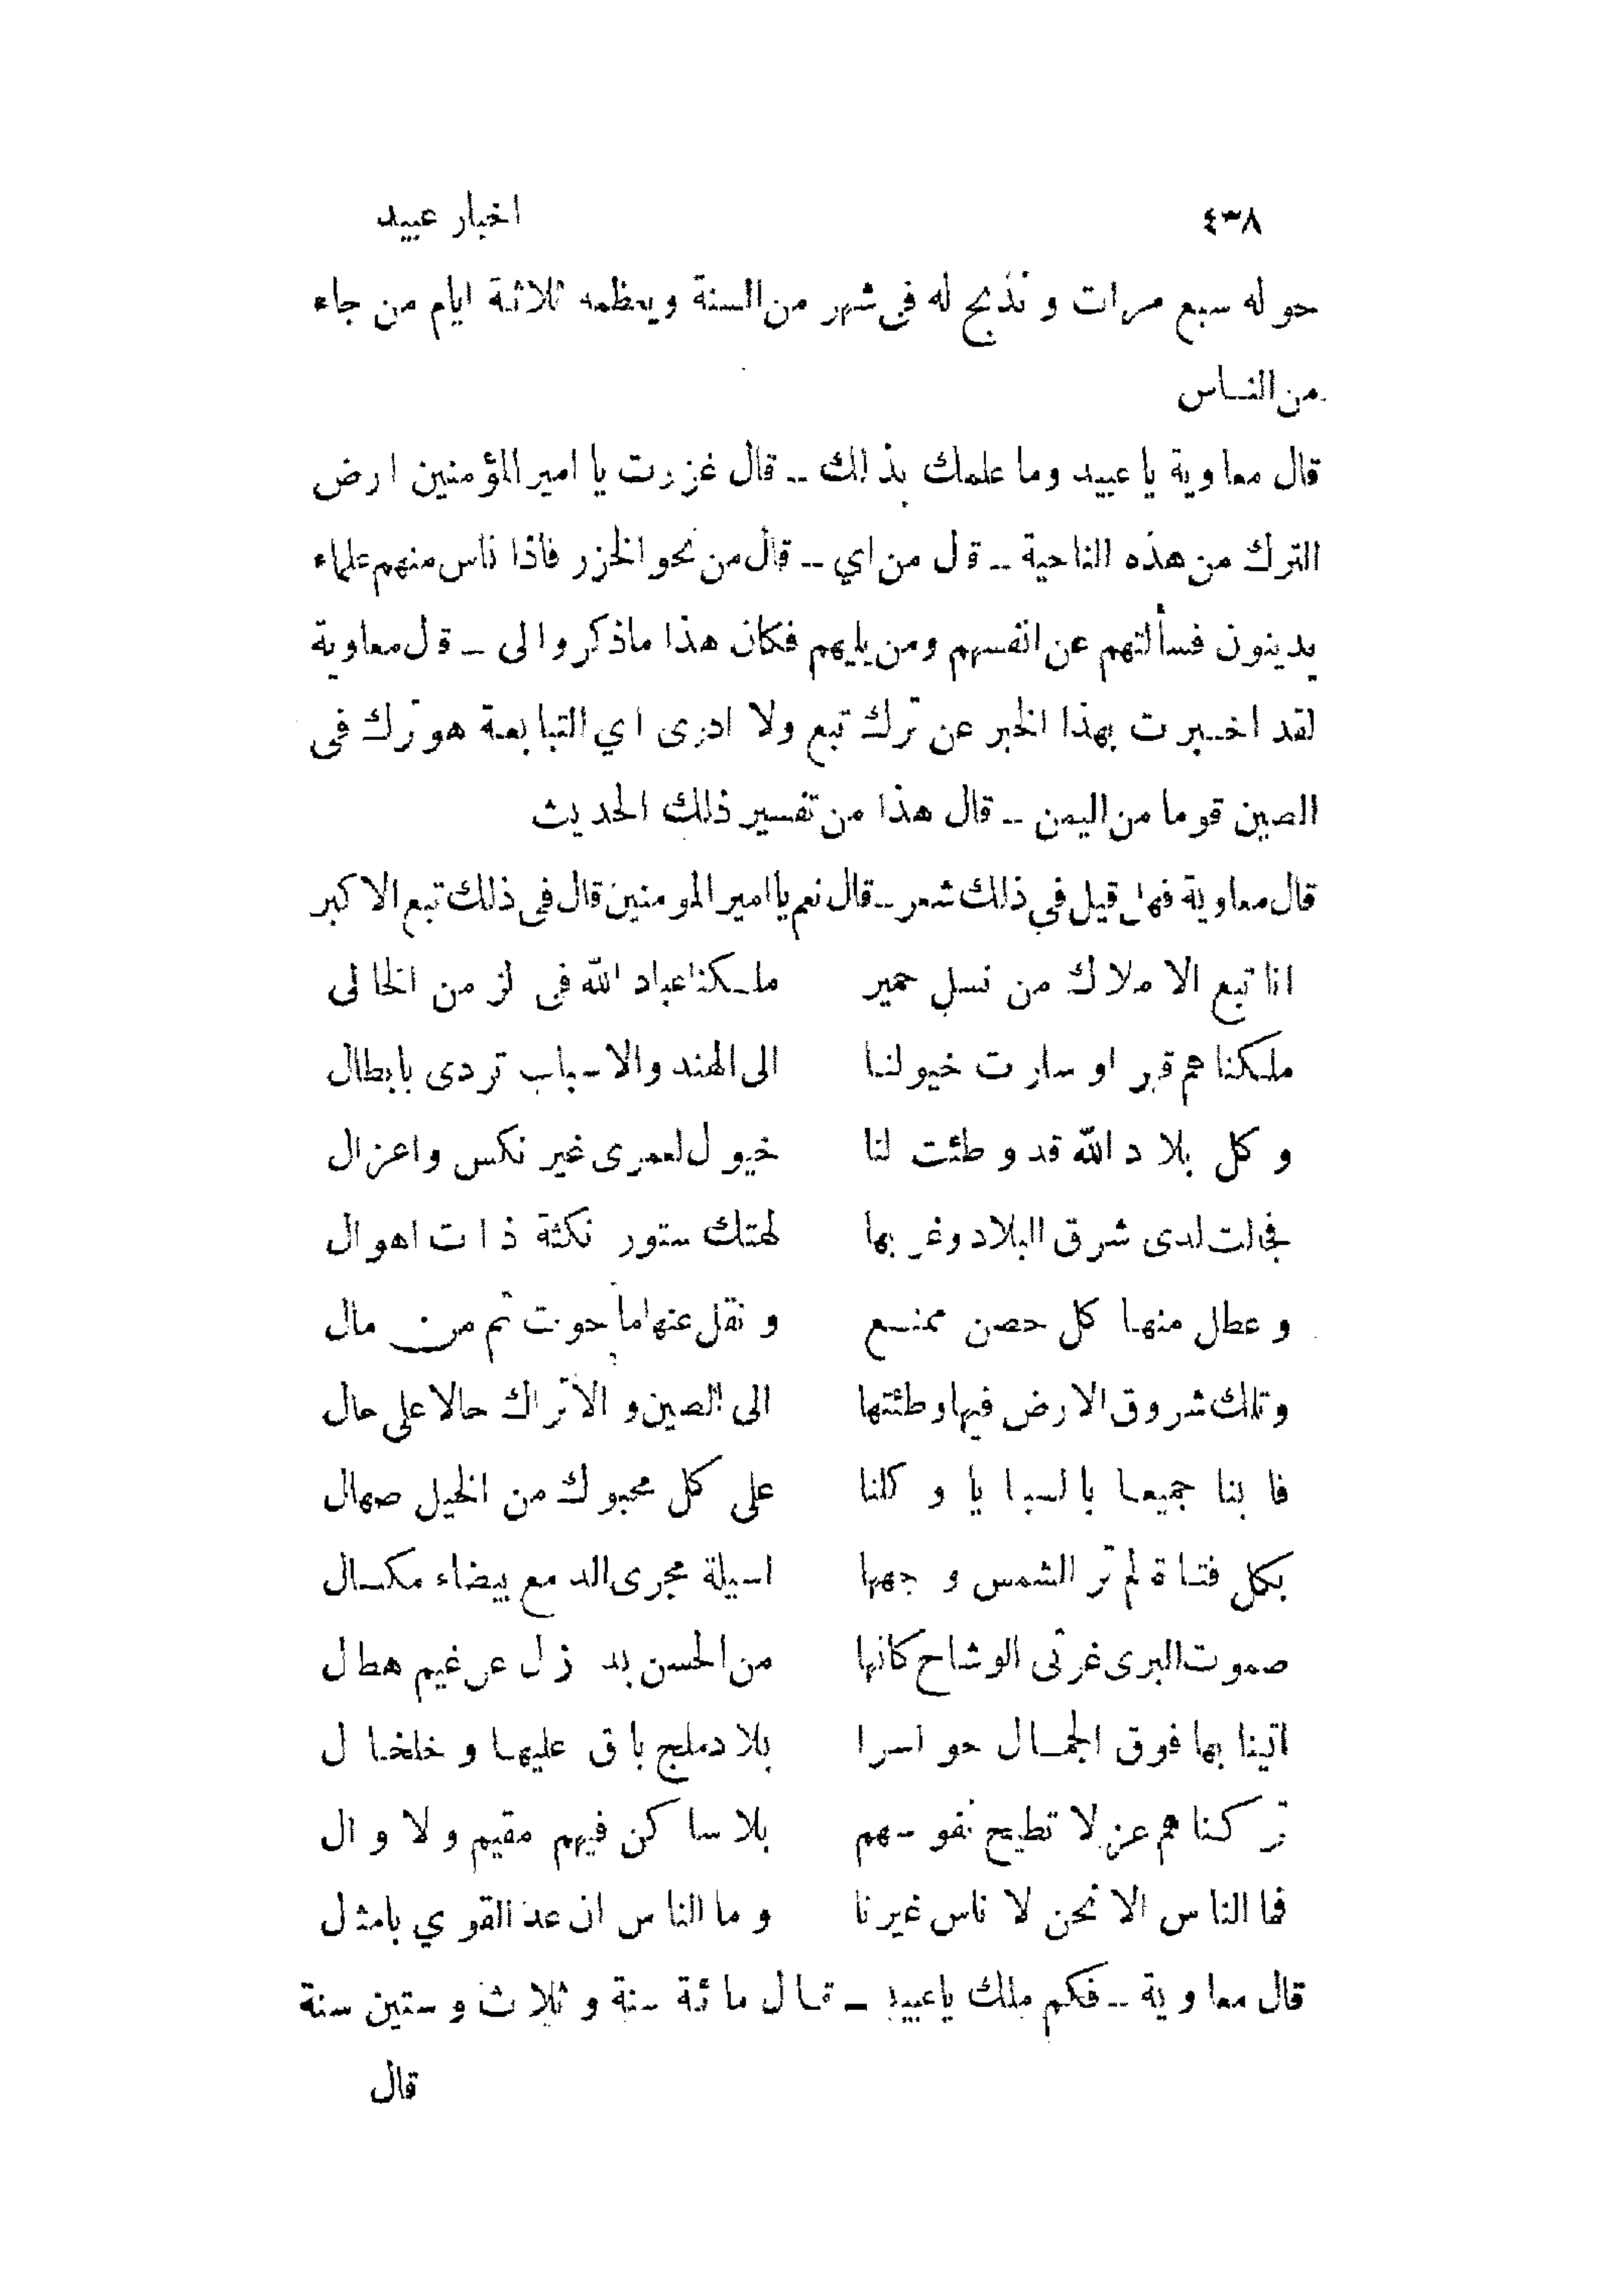 ٤٣٨ اخبار عبيد
حوله سبع مرات وتذبح له فى شهر من السنة ويعظمه ثلاثة ايام من جاء
من الناس
قال معاوية يا عبيد وما علمك بذلك ــ قال غزوت يا امير المؤمنين ارض
الترك من هذه الناحية ــ قال من اي ــ قال من نحو الخزر فاذا ناس منهم علماء
يدينون فسألتهم عن انفسهم ومن يليهم فكان هذا ما ذكروا لى ــ قال معاوية
لقد اخبرت بهذا الخبر عن ترك تبع ولا ادرى اي التبابعة هو ترك فى
الصين قوما من اليمن ــ قال هذا من تفسير ذلك الحديث
قال معاوية فهل قيل في ذلك شعر ــ قال نعم يا امير المومنين قال فى ذلك تبع الاكبر
انا تبع الاملاك من نسل حمير ملكنا عباد الله فى الزمن الخالى
ملكناهم قهرا وسارت خيولنا الى الهند والاسباب تردى بابطال
وكل بلاد الله قد وطئت لنا خيول لعمرى غير نكس واعزال
فجالت لدى شرق البلاد وغربها لهتك ستور نكثة ذات اهوال
وعطل منها كل حصن ممنع ونقل عنها ما حوت ثم من مال
وتلك شروق الارض فيها وطئتها الى الصين و الاتراك حالا على حال
فابنا جميعا بالسبايا وكلنا على كل محبوك من الخيل صهال
بكل فتاة لم تر الشمس وجهها اسيلة مجرى الدمع بيضاء مكسال
صموت البرى غرثى الوشاح كانها من الحسن بدر زل عن غيم هطال
اتينا بها فوق الجمال حواسرا بلا دملج باق عليها وخلخال
تركناهم عزلا تطيح نفوسهم بلا ساكن فيهم مقيم ولا وال
فما الناس الا نحن لا ناس غيرنا وما الناس ان عد القوي بامثال
قال معاوية ــ فكم ملك يا عبيد ــ قال مائة سنة وثلاث وستين سنة
قال